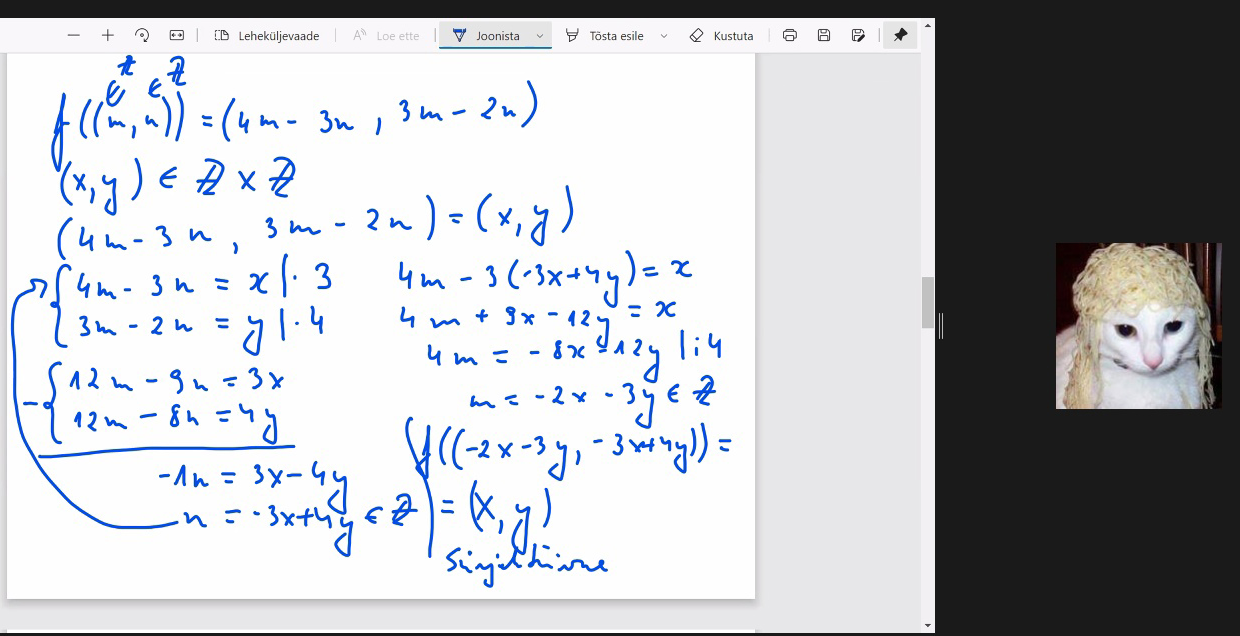 Leheküljevaade
Loe ette
Joonista
Tõsta esile
Kustuta
∈ℤ ∈ℤ
f((m,n)) = (4m - 3n , 3m - 2n)
(x,y) ∈ ℤ × ℤ
(4m - 3n , 3m - 2n) = (x,y)
4m - 3n = x |· 3
3m - 2n = y |· 4
12m - 9n = 3x
12m - 8n = 4y
-1n = 3x - 4y
n = -3x+4y ∈ ℤ
4m - 3(-3x+4y) = x
4m + 9x - 12y = x
4m = - 8x - 12y |:4
m = -2x - 3y ∈ ℤ
f((-2x-3y, -3x+4y)) =
= (x,y)
Sürjektiivne